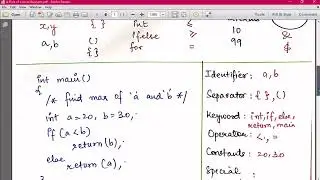 x,y { } int ≤ 10 &
a,b () if/else = 99
{ } for
int main()
{
/* find max of 'a' and 'b' */
int a=20, b=30;
If (a<b)
return(b);
else
return(a);
Identifier: a,b
Separator: { } , ()
Keyword: int, if, else,
return, main
Operator: <, =
Constants: 20,30
Special :